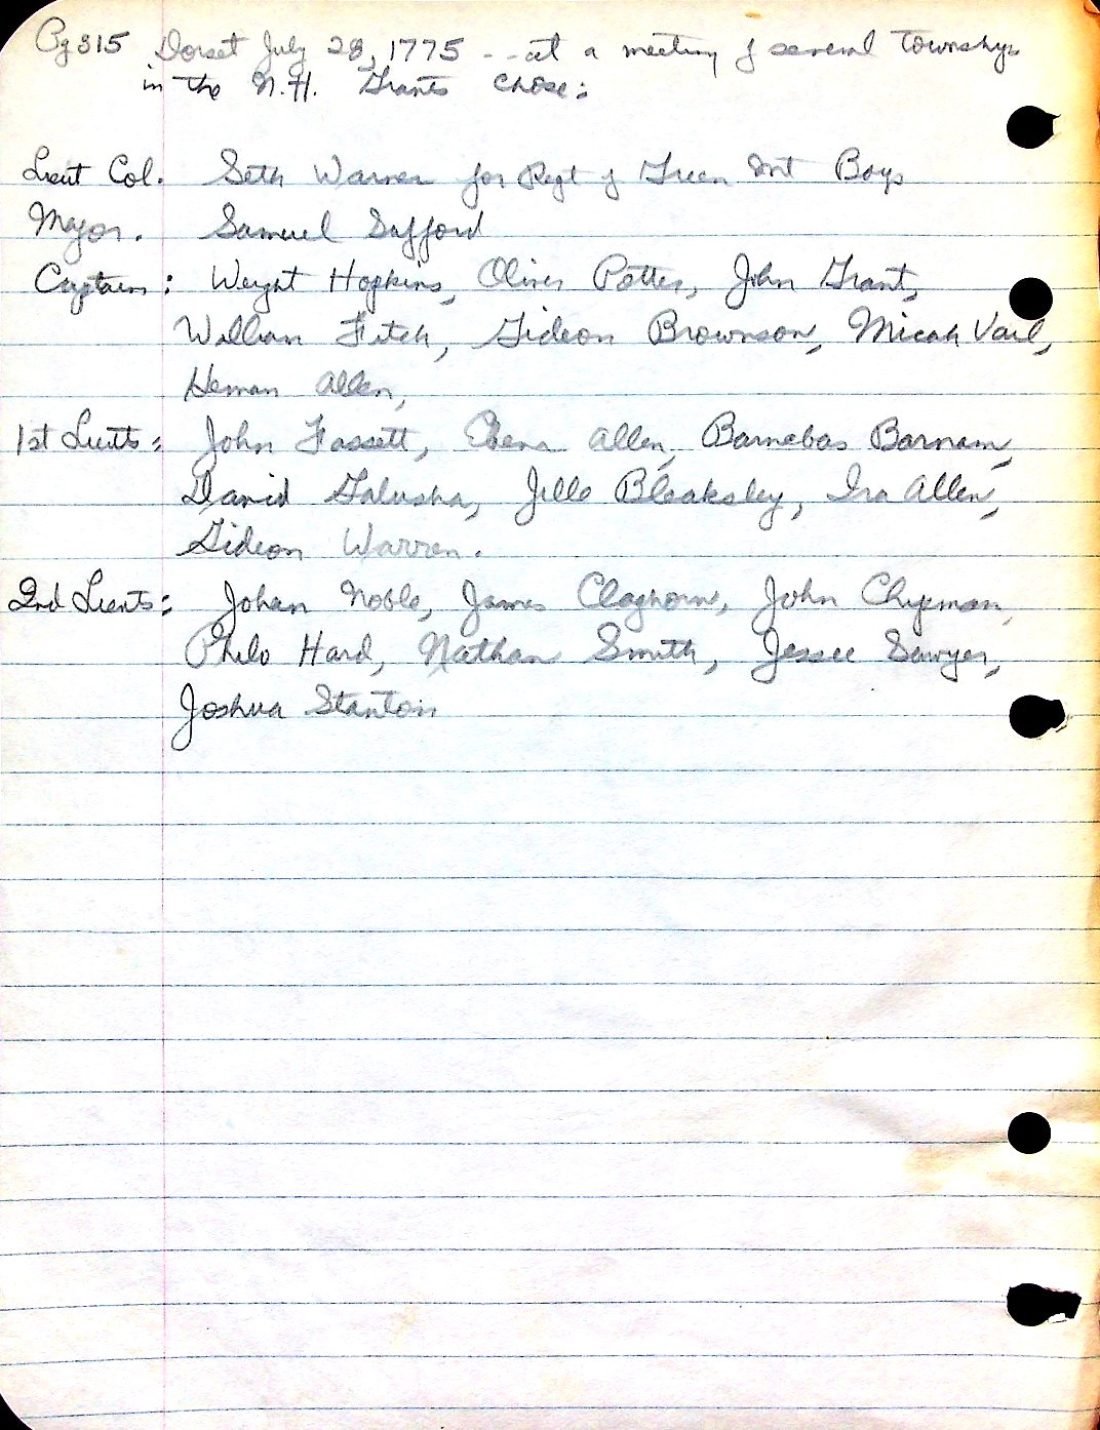 Pg 315 Dorset July 28, 1775 -- at a meeting of several Townships
in the N.H. Grants chose:
Lieut Col. Seth Warner for Regt of Green Mt Boys
Major. Samuel Safford
Captains: Weight Hopkins, Oliver Potter, John Grant,
William Fitch, Gideon Brownson, Micah Vail,
Heman Allen,
1st Lieuts: John Fassett, Ebenr Allen, Barnabas Barnam,
David Galusha, Jille Bleaksley, Ira Allen,
Gideon Warren.
2nd Lieuts: Johan Noble, James Claghorn, John Chipman,
Philo Hard, Nathan Smith, Jessee Sawyer,
Joshua Stanton